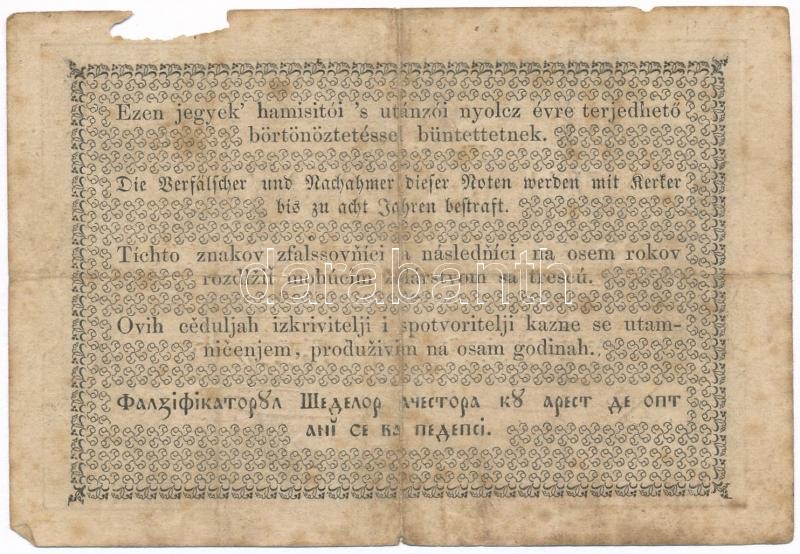 Ezen jegyek' hamisitói 's utánzói nyolcz évre terjedhető
börtönöztetéssel büntettetnek.
Die Verfälscher und Nachahmer dieser Noten werden mit Kerker
bis zu acht Jahren bestraft.
Tíchto znakov zfalssovňíci a následňíci na osem rokov
mohúcim žalárstvom sa tresců.
darabanth
Ovih céduljah izkrivitelji i spotvoritelji kazne se utam-
ničenjem, produživim na osam godinah.
Фалꙁіфікаторꙋл Шеделор ачестора кꙋ арест де опт
анї се ва педепсі.